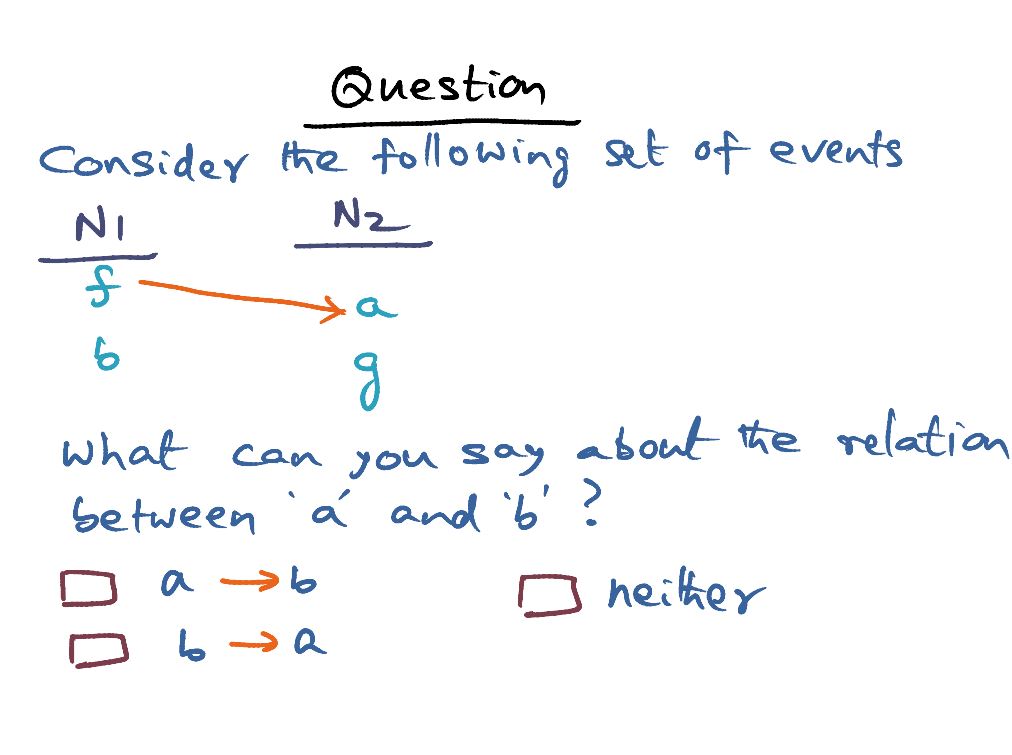 Question
Consider the following set of events
N1 N2
f → a
b g
What can you say about the relation
between 'a' and 'b' ?
a → b neither
b → a